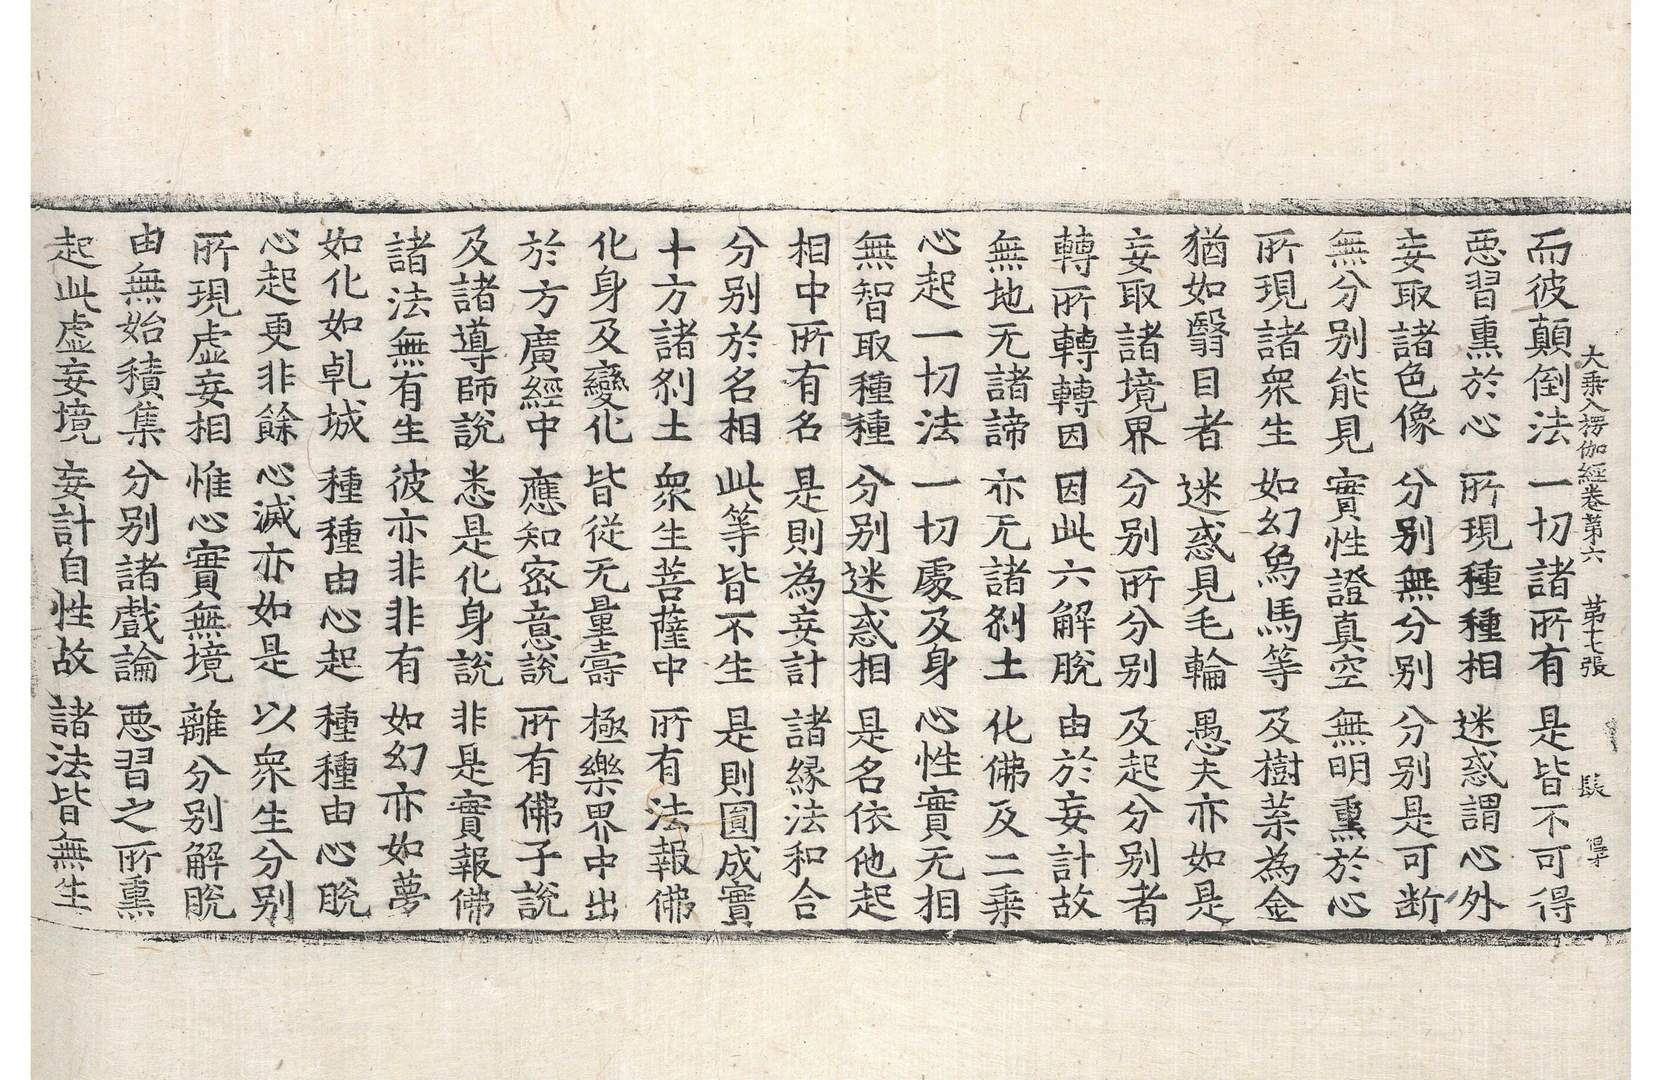 大乘入楞伽經卷第六 第七張 髮
而彼顛倒法 一切諸所有 是皆不可得
惡習熏於心 所現種種相 迷惑謂心外
妄取諸色像 分别無分别 分别是可断
無分别能見 實性證真空 無明熏於心
所現諸衆生 如幻象馬等 及樹葉為金
猶如翳目者 迷惑見毛輪 愚夫亦如是
妄取諸境界 分别所分别 及起分别者
轉所轉轉因 因此六解脫 由於妄計故
無地无諸諦 亦无諸刹土 化佛及二乗
心起一切法 一切處及身 心性實无相
無智取種種 分别迷惑相 是名依他起
相中所有名 是則為妄計 諸緣法和合
分别於名相 此等皆不生 是則圓成實
十方諸刹土 衆生菩薩中 所有法報佛
化身及變化 皆從无量壽 極樂界中出
於方廣經中 應知密意說 所有佛子說
及諸導師說 悉是化身說 非是實報佛
諸法無有生 彼亦非非有 如幻亦如夢
如化如乹城 種種由心起 種種由心脫
心起更非餘 心滅亦如是 以衆生分别
所現虛妄相 惟心實無境 離分别解脫
由無始積集 分别諸戲論 惡習之所熏
起此虛妄境 妄計自性故 諸法皆無生